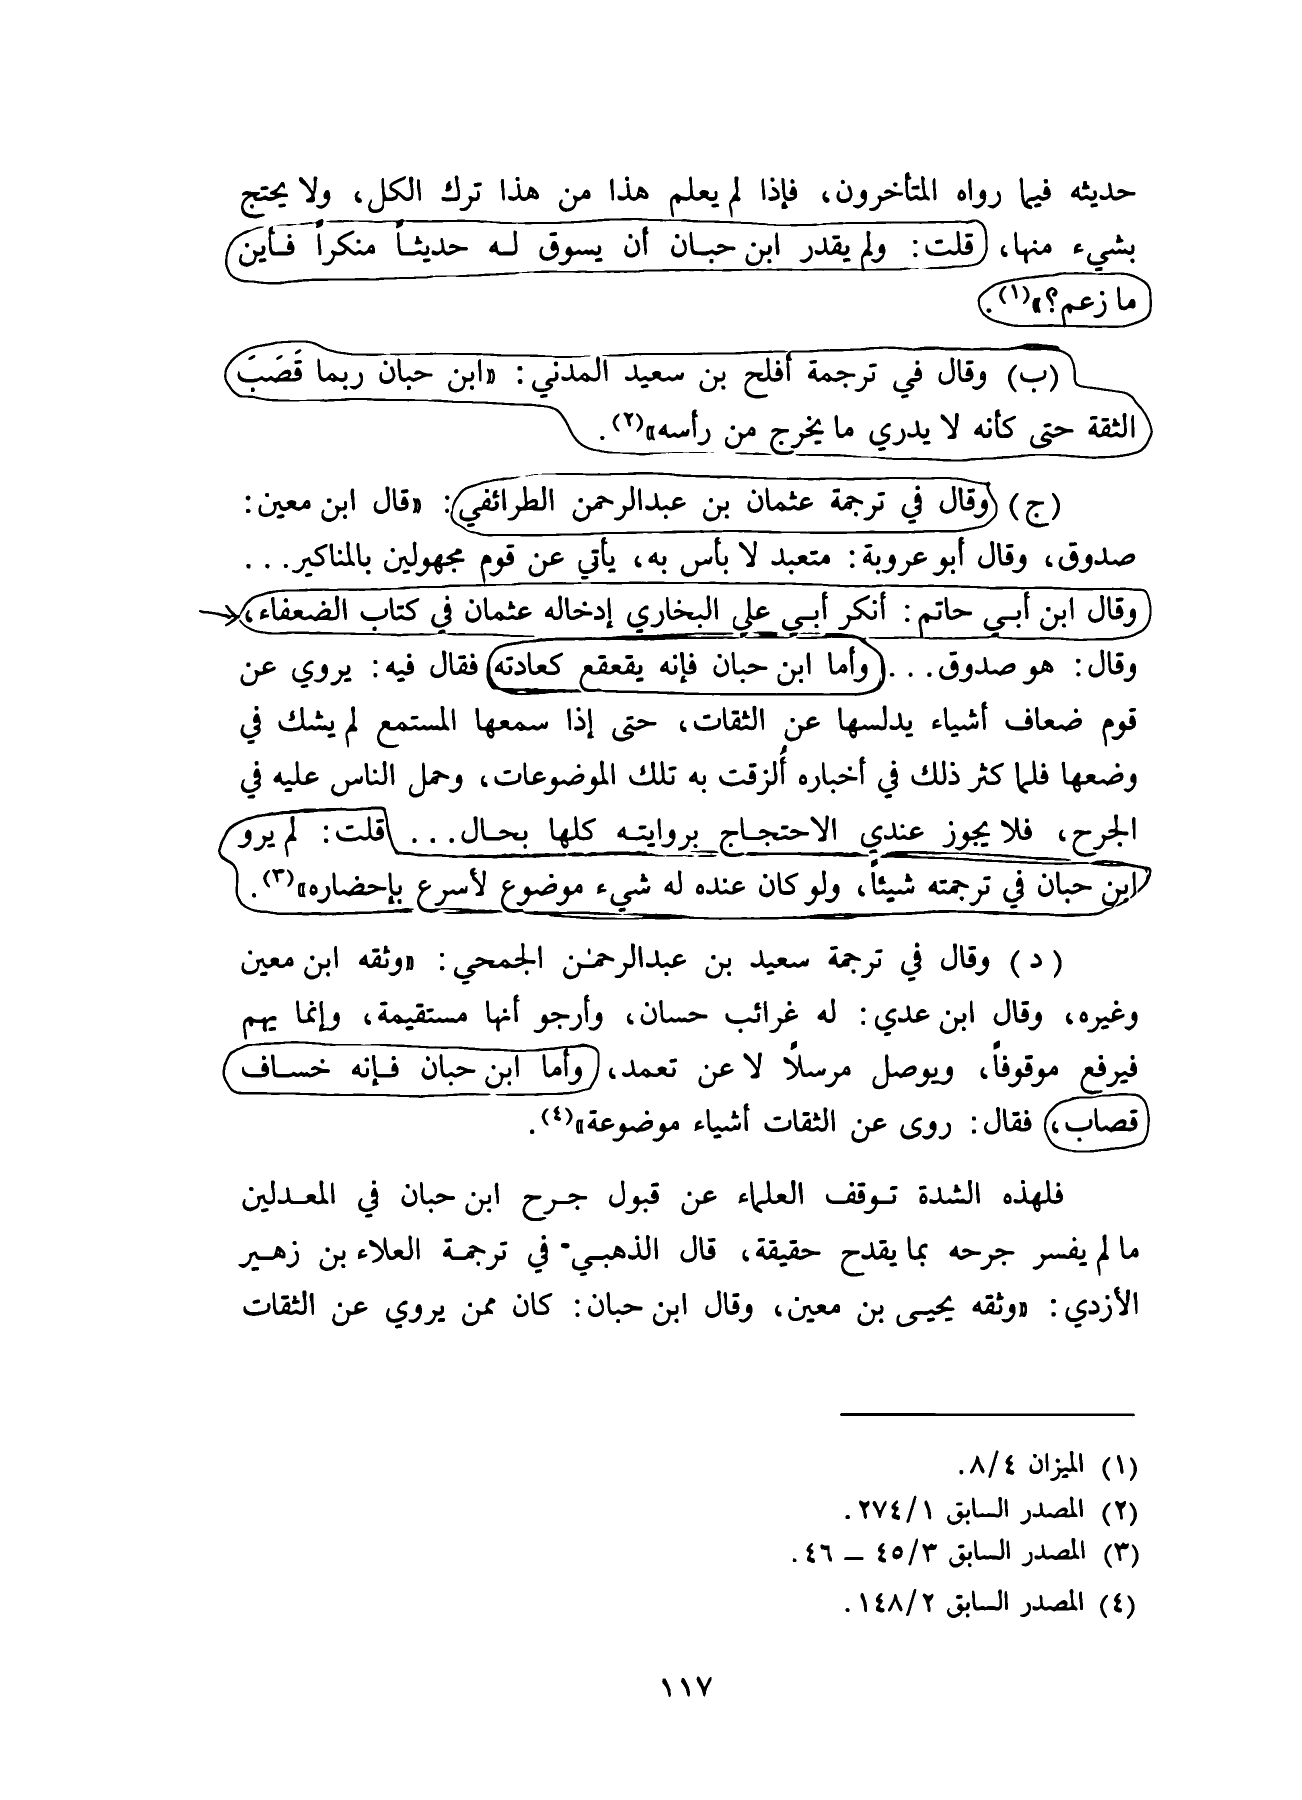 حديثه فيما رواه المتأخرون، فإذا لم يعلم هذا من هذا ترك الكل، ولا يحتج
بشيء منها، قلت: ولم يقدر ابن حبـان أن يسوق لـه حديثـاً منكراً فـأين
ما زعم؟»(١).
(ب) وقال في ترجمة أفلح بن سعيد المدني: «ابن حبان ربما قَصَبَ
الثقة حتى كأنه لا يدري ما يخرج من رأسه»(٢).
(ج) وقال في ترجمة عثمان بن عبدالرحمن الطرائفي: «قال ابن معين:
صدوق، وقال أبو عروبة: متعبد لا بأس به، يأتي عن قوم مجهولين بالمناكير...
وقال ابن أبـي حاتم: أنكر أبـي على البخاري إدخاله عثمان في كتاب الضعفاء،
وقال: هو صدوق... وأما ابن حبان فإنه يقعقع كعادته فقال فيه: يروي عن
قوم ضعاف أشياء يدلسها عن الثقات، حتى إذا سمعها المستمع لم يشك في
وضعها فلما كثر ذلك في أخباره أُلزقت به تلك الموضوعات، وحمل الناس عليه في
الجرح، فلا يجوز عندي الاحتجـاج بروايتـه كلها بحـال... قلت: لم يرو
ابن حبان في ترجمته شيئاً، ولو كان عنده له شيء موضوع لأسرع بإحضاره»(٣).
(د) وقال في ترجمة سعيد بن عبدالرحمٰن الجمحي: «وثقه ابن معين
وغيره، وقال ابن عدي: له غرائب حسان، وأرجو أنها مستقيمة، وإنما يهم
فيرفع موقوفاً، ويوصل مرسلاً لا عن تعمد، وأما ابن حبان فـإنه خسـاف
قصاب، فقال: روى عن الثقات أشياء موضوعة»(٤).
فلهذه الشدة تـوقف العلماء عن قبول جـرح ابن حبان في المعـدلين
ما لم يفسر جرحه بما يقدح حقيقة، قال الذهبـي- في ترجمـة العلاء بن زهـير
الأزدي: «وثقه يحيـى بن معين، وقال ابن حبان: كان ممن يروي عن الثقات
(١) الميزان ٨/٤.
(٢) المصدر السابق ٢٧٤/١.
(٣) المصدر السابق ٤٥/٣ ــ ٤٦.
(٤) المصدر السابق ١٤٨/٢.
١١٧